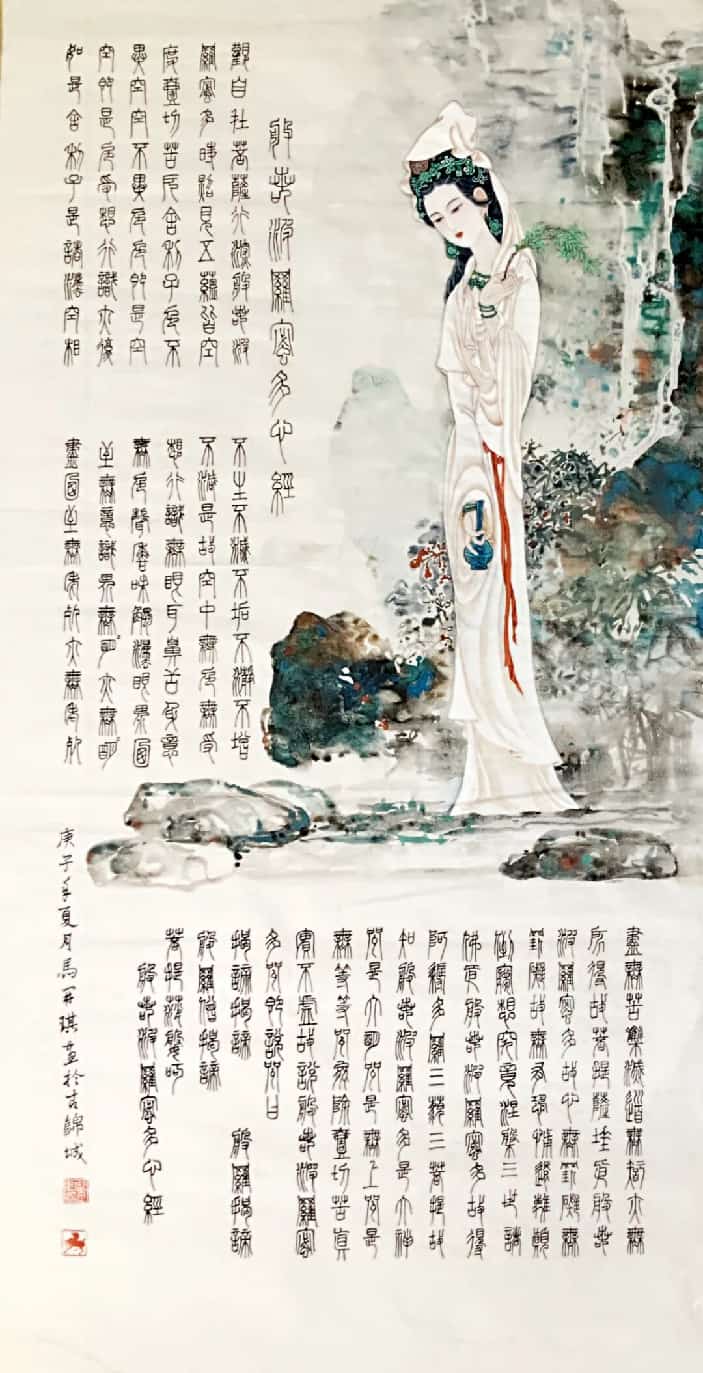 般若波羅蜜多心經
觀自在菩薩行深般若波
羅蜜多時照見五蘊皆空
度壹切苦厄舍利子色不
異空空不異色色即是空
空即是色受想行識亦復
如是舍利子是諸灋空相
不生不滅不垢不淨不增
不減是故空中無色無受
想行識無眼耳鼻舌身意
無色聲香味觸灋眼界乃
至無意識界無明亦無明
盡乃至無老死亦無老死
盡無苦集滅道無智亦無
所得故菩提薩埵依般若
波羅蜜多故心無罣礙無
罣礙故無有恐怖遠離顛
倒夢想究竟涅槃三世諸
佛依般若波羅蜜多故得
阿耨多羅三藐三菩提故
知般若波羅蜜多是大神
咒是大明咒是無上咒是
無等等咒能除壹切苦真
實不虛故說般若波羅蜜
多咒即說咒曰
揭諦揭諦 般羅揭諦
般羅僧揭諦
菩提薩婆訶
般若波羅蜜多心經
庚子年夏月馬开琪画於吉錦城